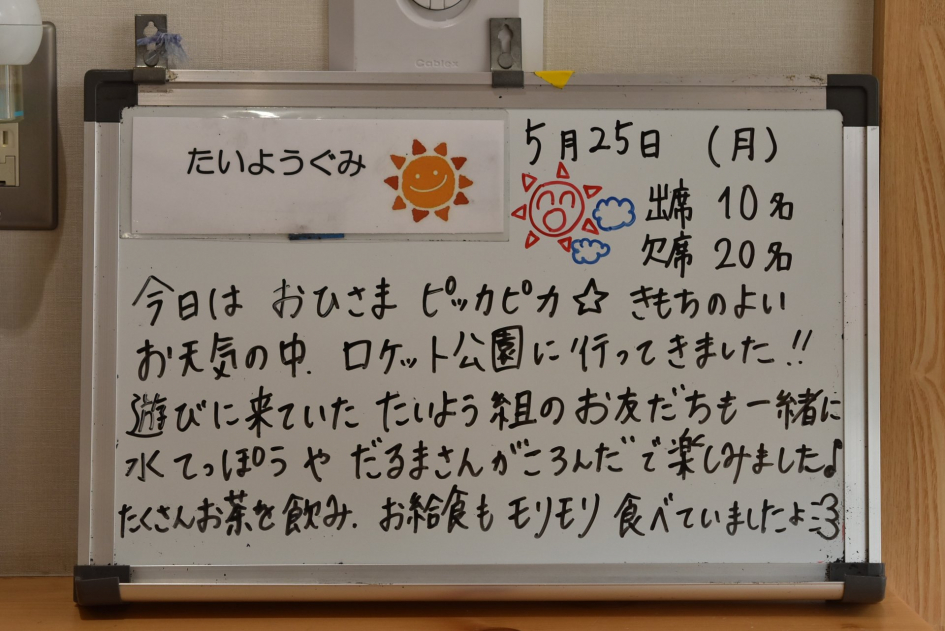 Cablex
たいようぐみ
5月25日 (月)
出席 10名
欠席 20名
今日は おひさま ピッカピカ☆ きもちのよい
お天気の中、ロケット公園に行ってきました!!
遊びに来ていた たいよう組のお友だちも一緒に
水てっぽうや だるまさんがころんだで楽しみました♪
たくさんお茶を飲み、お給食もモリモリ食べていましたよ